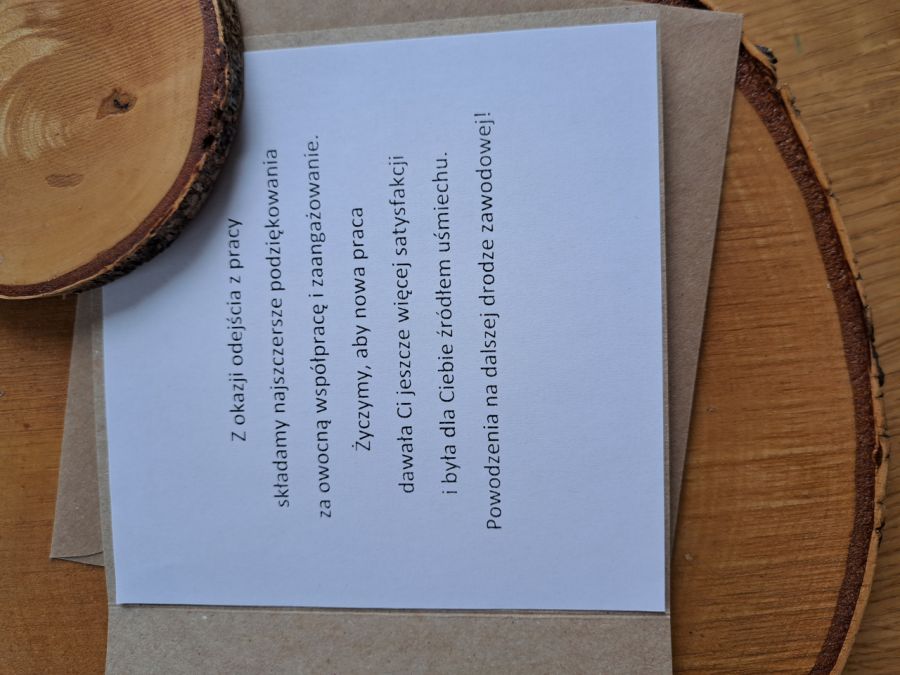 Z okazji odejścia z pracy
składamy najszczersze podziękowania
za owocną współpracę i zaangażowanie.
Życzymy, aby nowa praca
dawała Ci jeszcze więcej satysfakcji
i była dla Ciebie źródłem uśmiechu.
Powodzenia na dalszej drodze zawodowej!